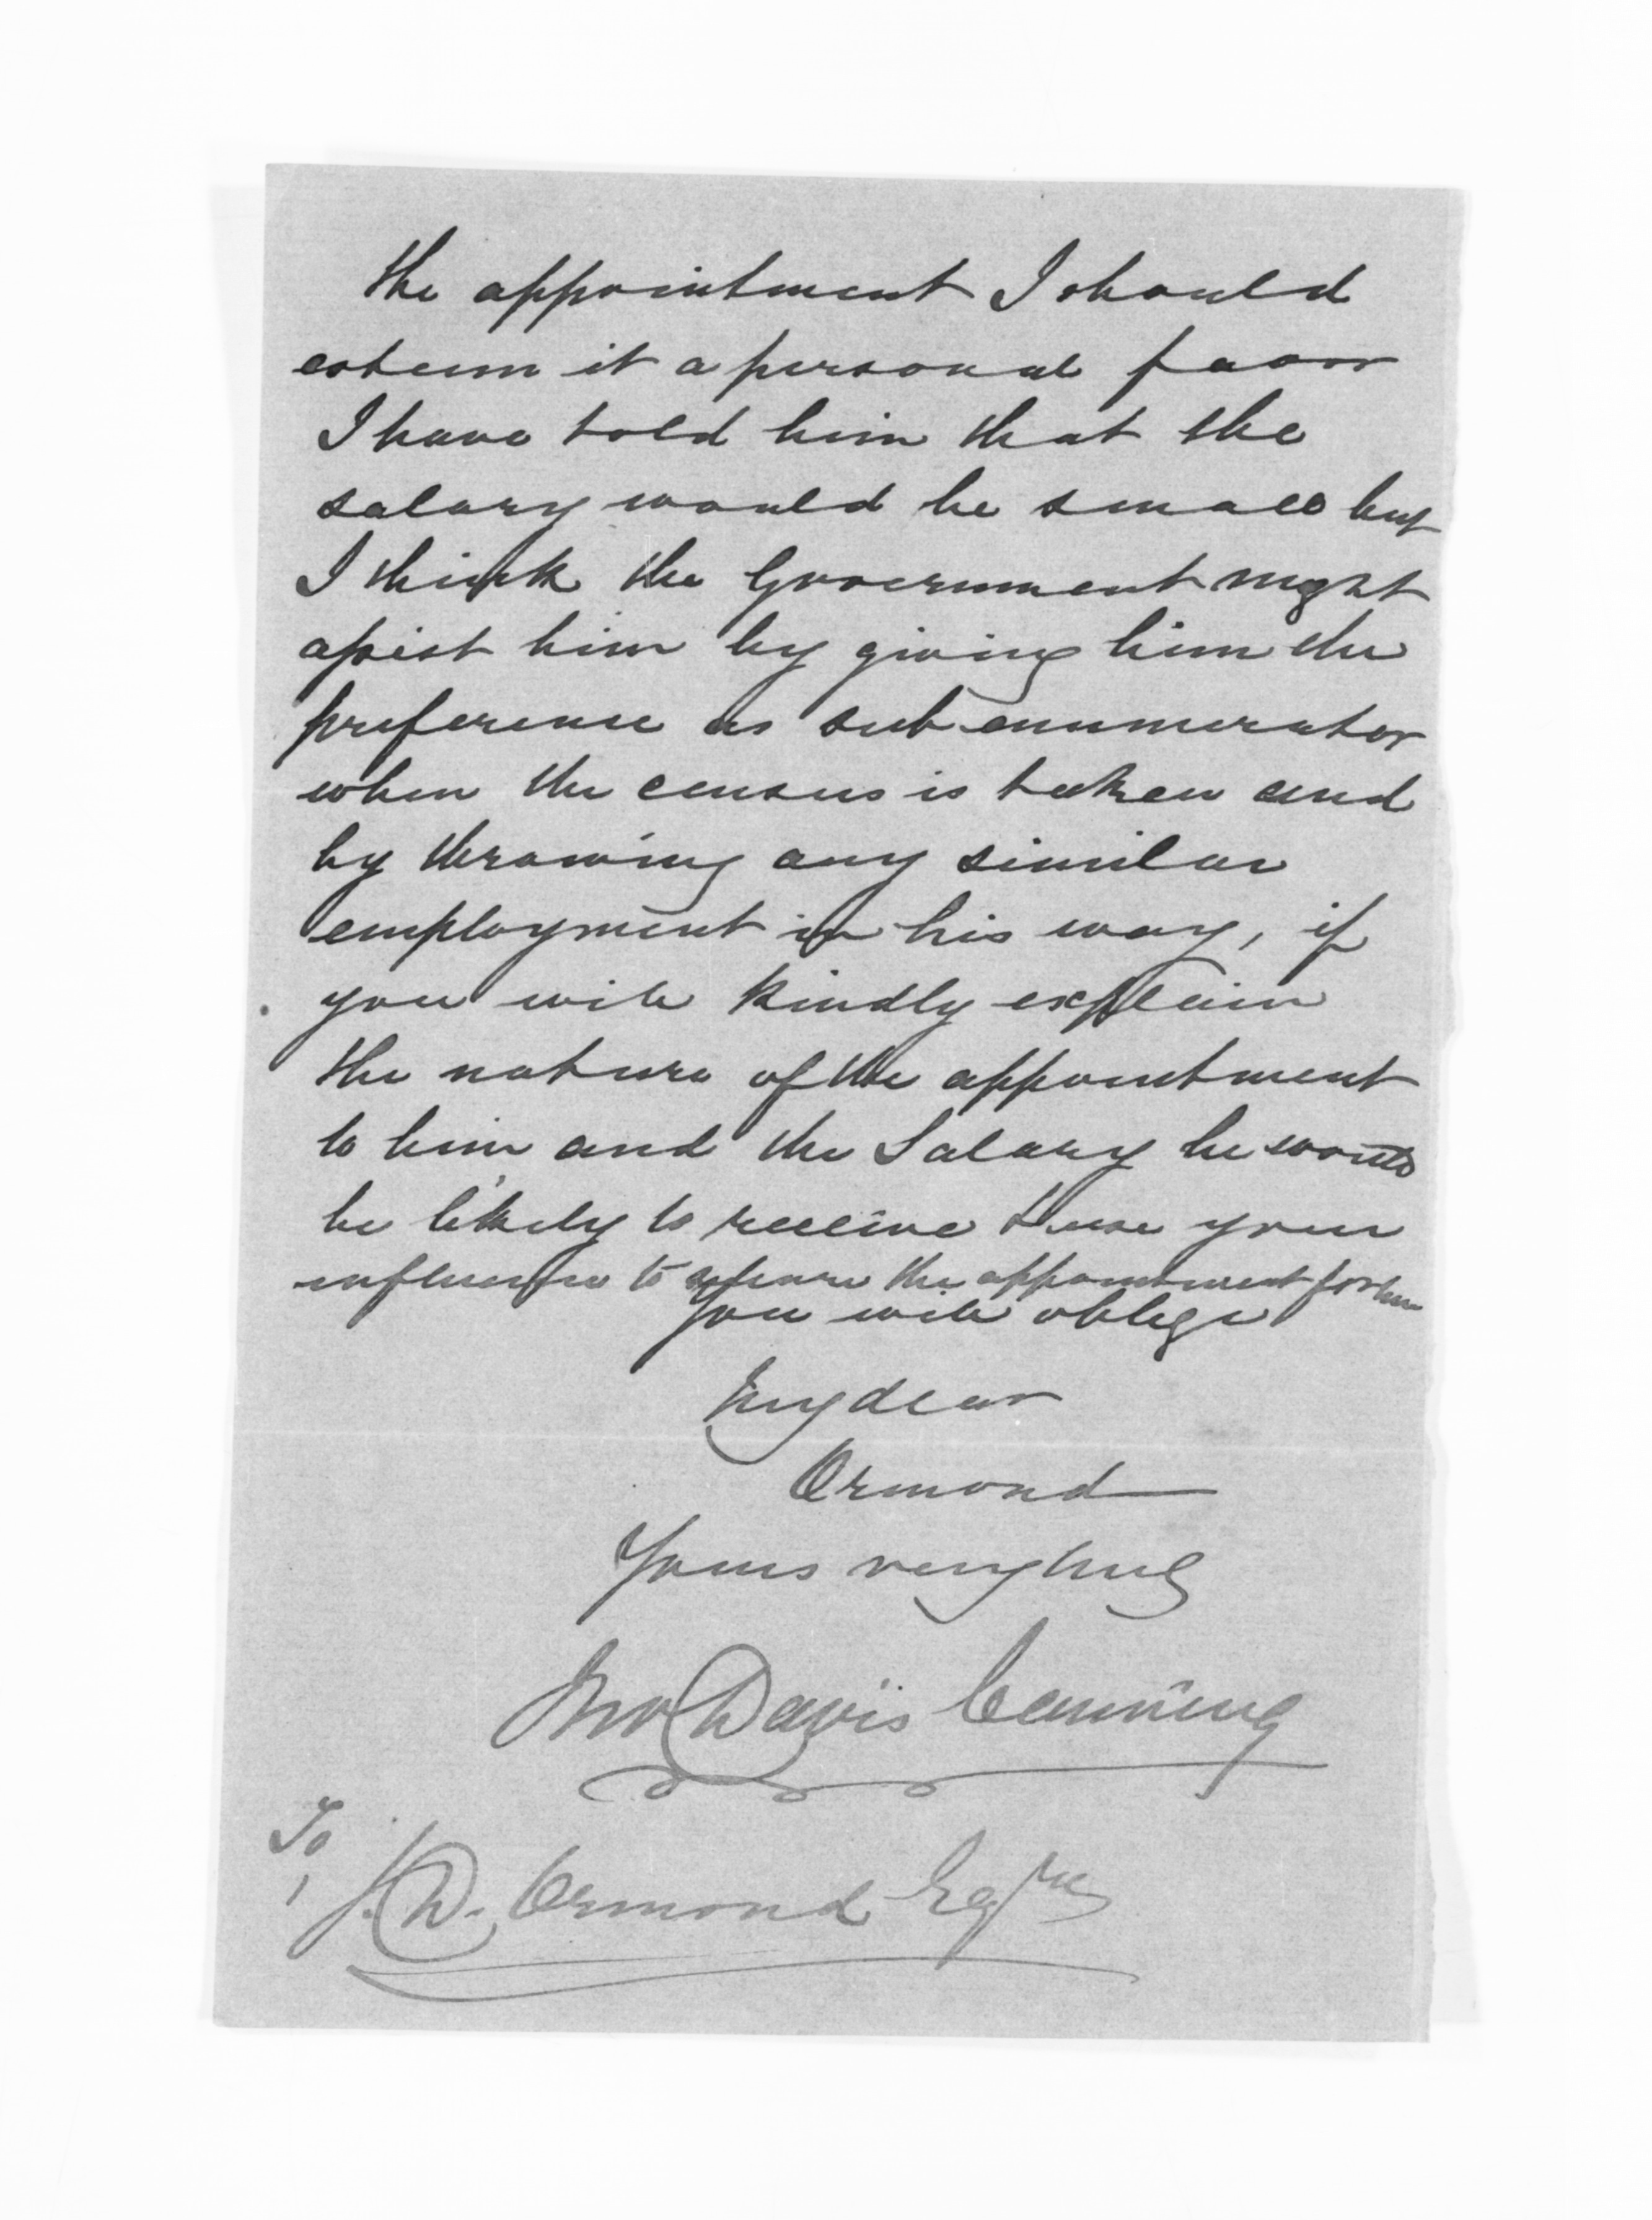 the appointment I should
esteem it a personal favor
I have told him that the
salary would be small but
I think the Government might
assist him by giving him the
preference as sub-enumerator
when the census is taken and
by throwing any similar
employment in his way, if
you will kindly explain
the nature of the appointment
to him and the Salary he would
be likely to receive & use your
influence to secure the appointment for him
You will oblige
My dear
Ormond
Yours very truly
Jno Davis Canning
To
J. D. Ormond Esqre